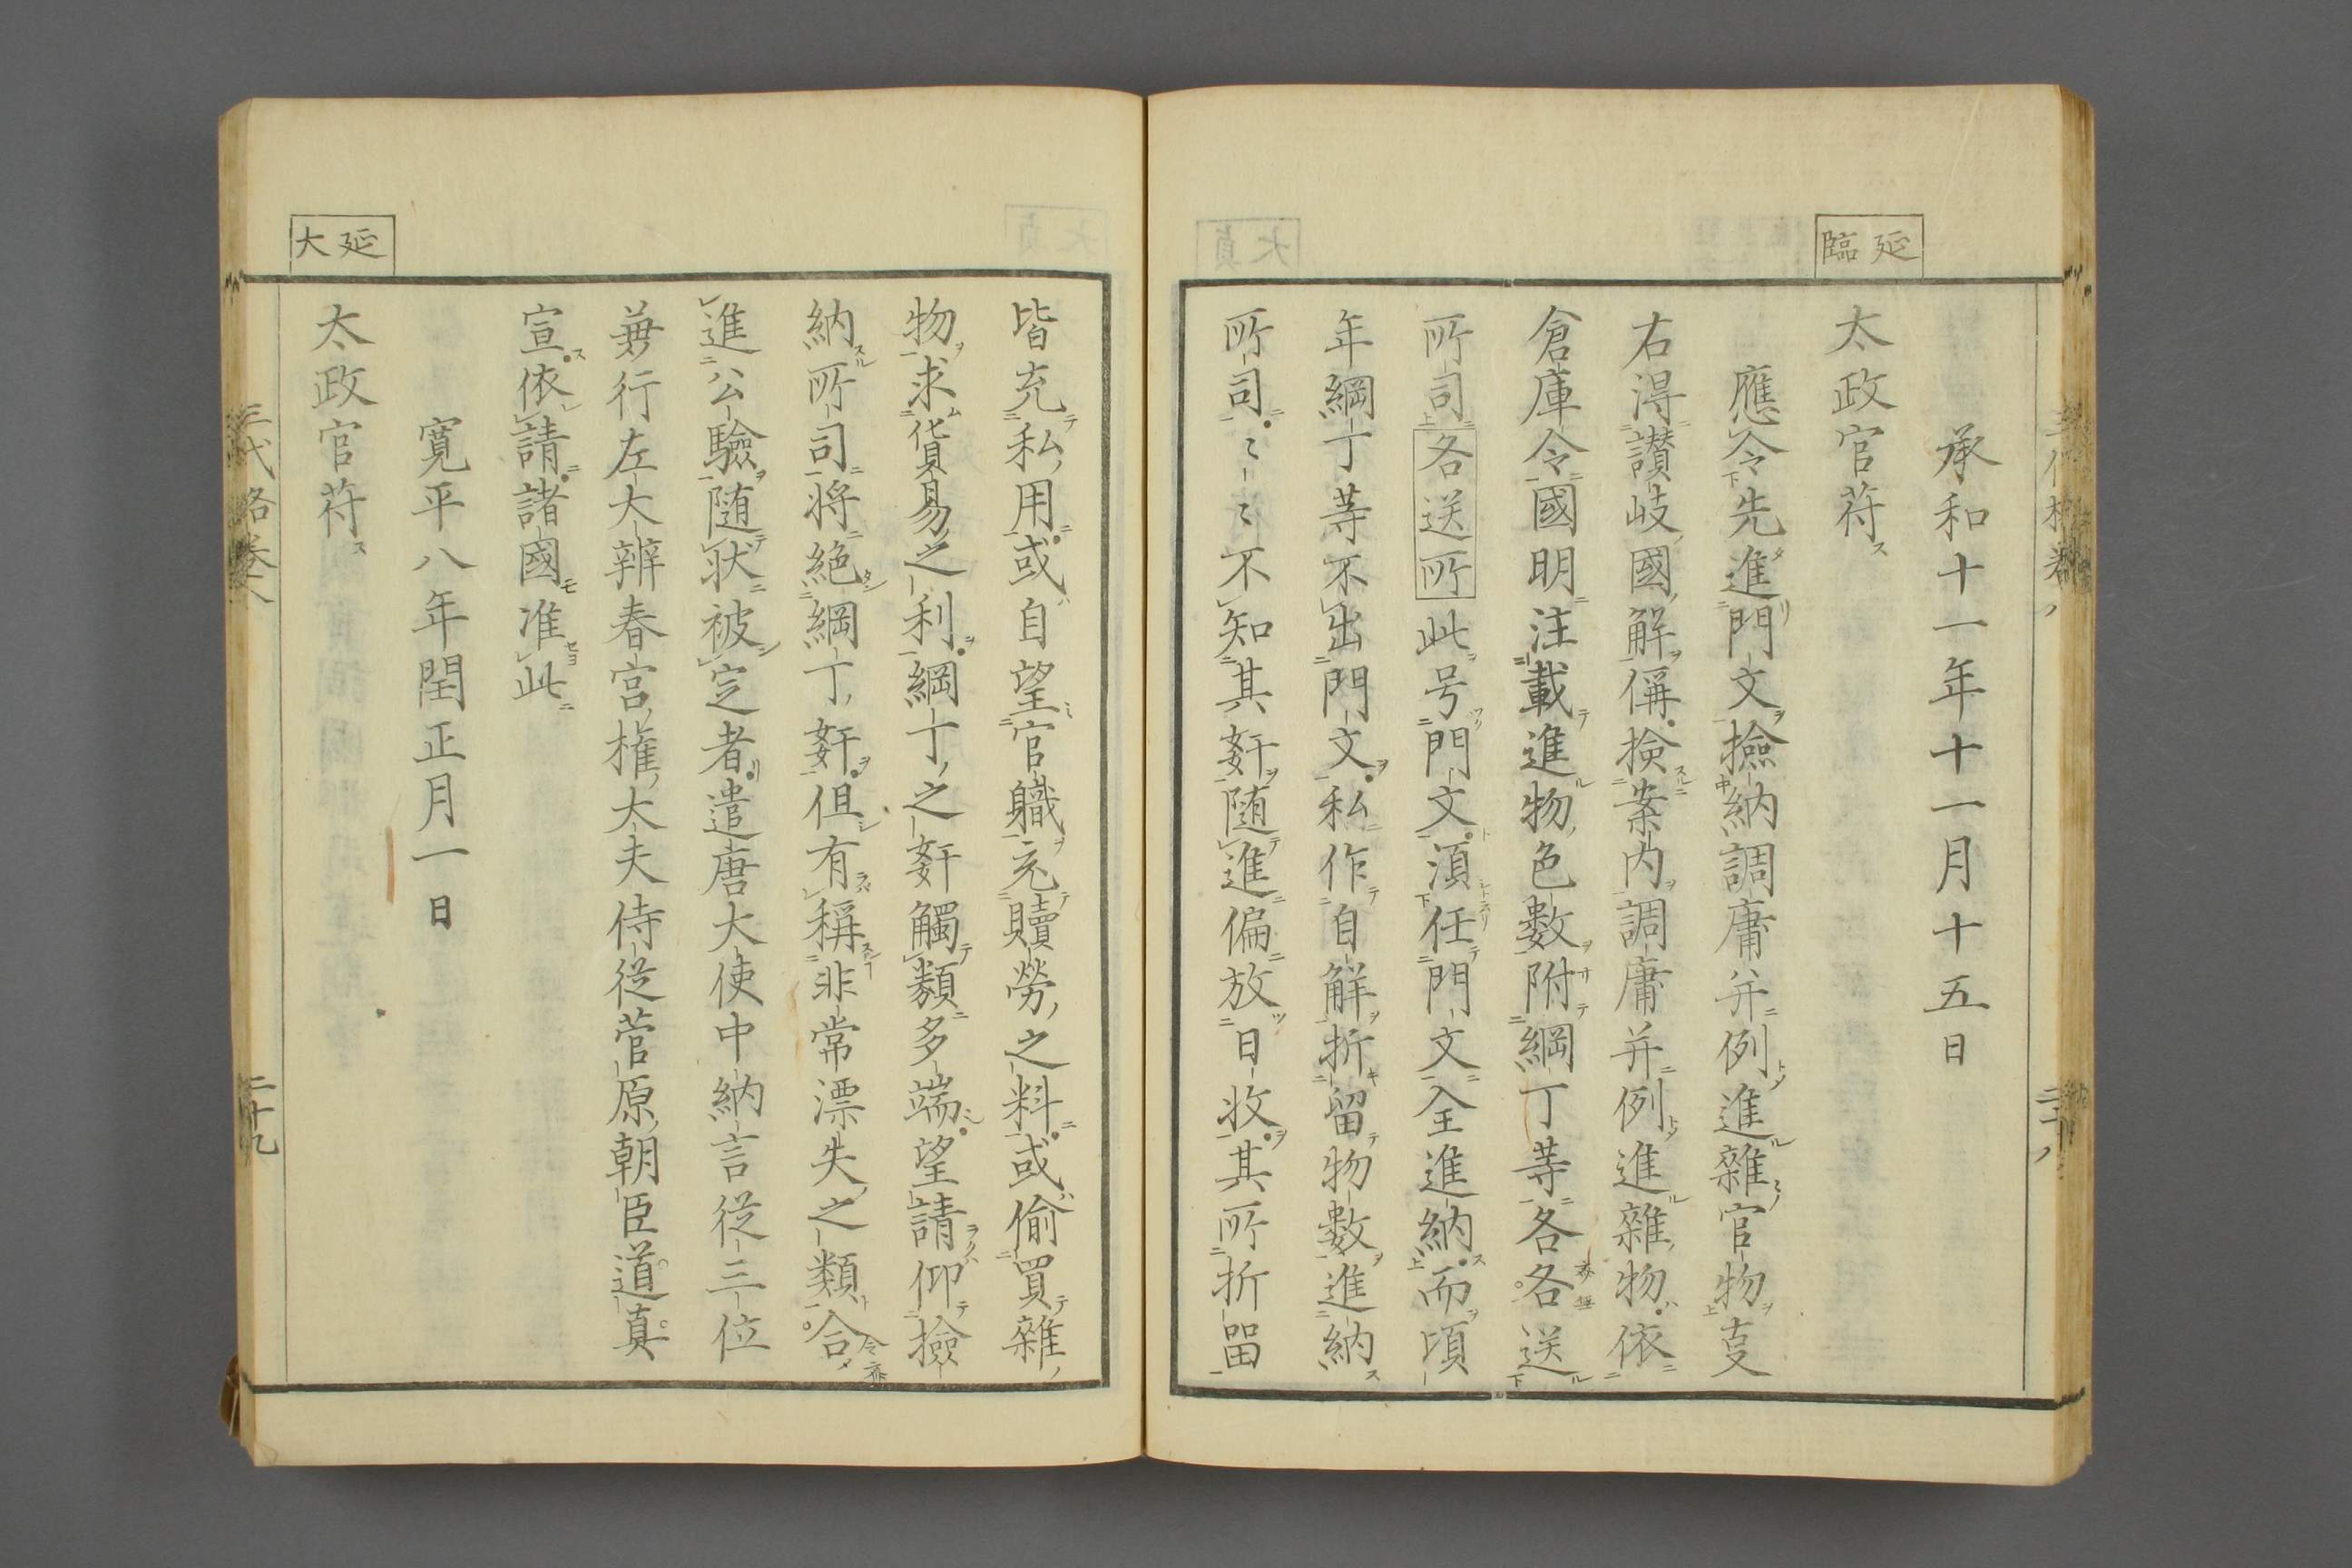 延臨
承和十一年十一月十五日
太政官符
應令先進門文撿納調庸并例進雜官物㕝
右得讃岐國解偁撿案内調庸并例進雜物依
倉庫令國明注載進物色數附綱丁等各各送
所司各送所此号門文湏任門文全進納而頃
年綱丁等不出門文私作自解折留物數進納
所司〻〻不知其姧随進偏放日收其所折留
皆充私用或自望官職充贖勞之料或偷買雜
物求貨易之利綱丁之姧觸類多端望請仰撿
納所司将絶綱丁姧但有稱非常漂失之類合
進公驗随状被定者遣唐大使中納言從三位
兼行左大辨春宮權大夫侍從菅原朝臣道真
宣依請諸國准此
寛平八年閏正月一日
太政官符
延大
三代格卷八
二十九